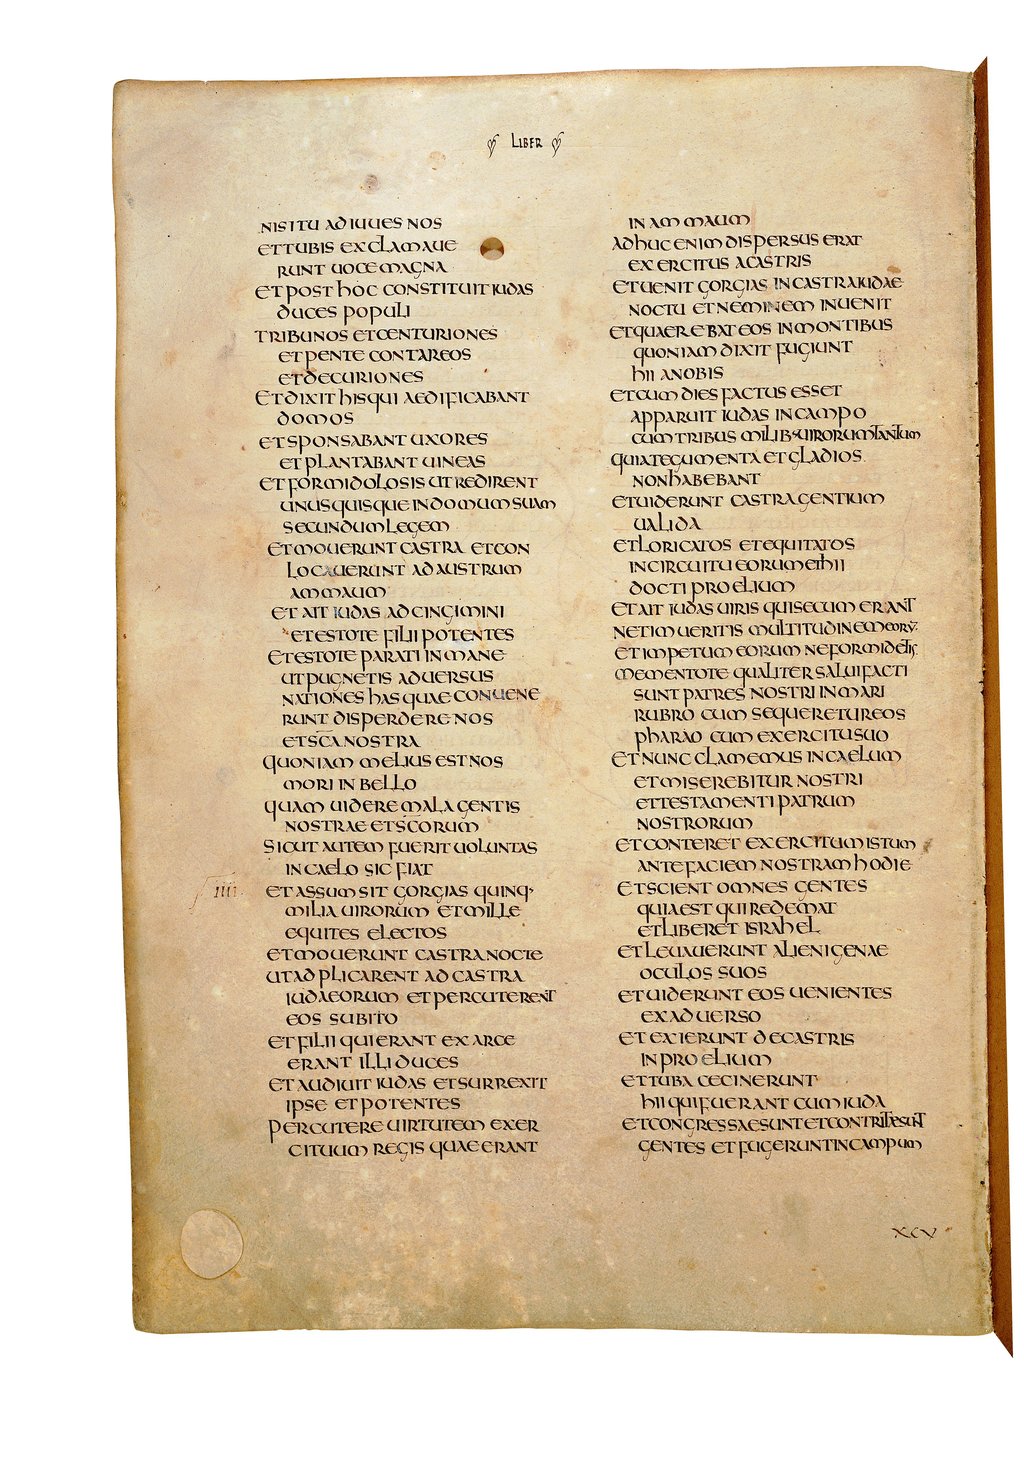 LIBER
NISI TU ADIUUES NOS
ET TUBIS EXCLAMAUE
RUNT UOCE MAGNA
ET POST HOC CONSTITUIT IUDAS
DUCES POPULI
TRIBUNOS ET CENTURIONES
ET PENTECONTARCOS
ET DECURIONES
ET DIXIT HIS QUI AEDIFICABANT
DOMOS
ET SPONSABANT UXORES
ET PLANTABANT UINEAS
ET FORMIDOLOSIS UT REDIRENT
UNUSQUISQUE IN DOMUM SUAM
SECUNDUM LEGEM
ET MOUERUNT CASTRA ET CON
LOCAUERUNT AD AUSTRUM
AMMAUM
ET AIT IUDAS ADCINGIMINI
ET ESTOTE FILII POTENTES
ET ESTOTE PARATI IN MANE
UT PUGNETIS ADUERSUS
NATIONES HAS QUAE CONUENE
RUNT DISPERDERE NOS
ET SCA NOSTRA
QUONIAM MELIUS EST NOS
MORI IN BELLO
QUAM UIDERE MALA GENTIS
NOSTRAE ET SCORUM
SICUT AUTEM FUERIT UOLUNTAS
IN CAELO SIC FIAT
IIII ET ASSUMSIT GORGIAS QUINQ·
MILIA UIRORUM ET MILLE
EQUITES ELECTOS
ET MOUERUNT CASTRA NOCTE
UT ADPLICARENT AD CASTRA
IUDAEORUM ET PERCUTERENT
EOS SUBITO
ET FILII QUI ERANT EX ARCE
ERANT ILLI DUCES
ET AUDIUIT IUDAS ET SURREXIT
IPSE ET POTENTES
PERCUTERE UIRTUTEM EXER
CITUUM REGIS QUAE ERANT
IN AMMAUM
ADHUC ENIM DISPERSUS ERAT
EXERCITUS A CASTRIS
ET UENIT GORGIAS IN CASTRA IUDAE
NOCTU ET NEMINEM INUENIT
ET QUAEREBAT EOS IN MONTIBUS
QUONIAM DIXIT FUGIUNT
HII A NOBIS
ET CUM DIES FACTUS ESSET
APPARUIT IUDAS IN CAMPO
CUM TRIBUS MILIB· UIRORUM TANTUM
QUIA TEGUMENTA ET GLADIOS
NON HABEBANT
ET UIDERUNT CASTRA GENTIUM
UALIDA
ET LORICATOS ET EQUITATOS
IN CIRCUITU EORUM ET HII
DOCTI PROELIUM
ET AIT IUDAS UIRIS QUI SECUM ERANT
NE TIMUERITIS MULTITUDINEM EORŪ·
ET IMPETUM EORUM NE FORMIDETIS
MEMENTOTE QUALITER SALUI FACTI
SUNT PATRES NOSTRI IN MARI
RUBRO CUM SEQUERETUR EOS
PHARAO CUM EXERCITU SUO
ET NUNC CLAMEMUS IN CAELUM
ET MISEREBITUR NOSTRI
ET TESTAMENTI PATRUM
NOSTRORUM
ET CONTERET EXERCITUM ISTUM
ANTE FACIEM NOSTRAM HODIE
ET SCIENT OMNES GENTES
QUIA EST QUI REDEMAT
ET LIBERET ISRAHEL
ET LEUAUERUNT ALIENIGENAE
OCULOS SUOS
ET UIDERUNT EOS UENIENTES
EX ADUERSO
ET EXIERUNT DE CASTRIS
IN PROELIUM
ET TUBA CECINERUNT
HII QUI FUERANT CUM IUDA
ET CONGRESSAE SUNT ET CONTRITAE SUNT
GENTES ET FUGERUNT IN CAMPUM
XCV